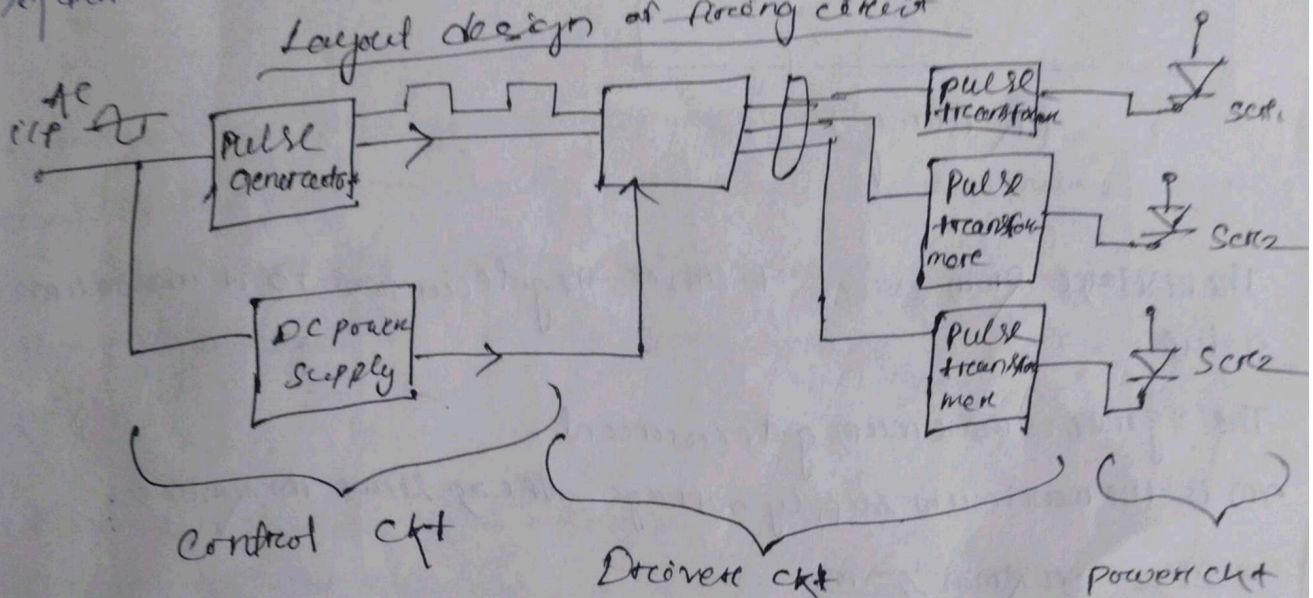 Layout design of firing circuit
AC
i/p
Pulse
Generator
DC power
supply
pulse
transformer
SCR1
pulse
transfor
more
SCR2
pulse
transfor
mer
SCR2
Control ckt
Driver ckt
power ckt